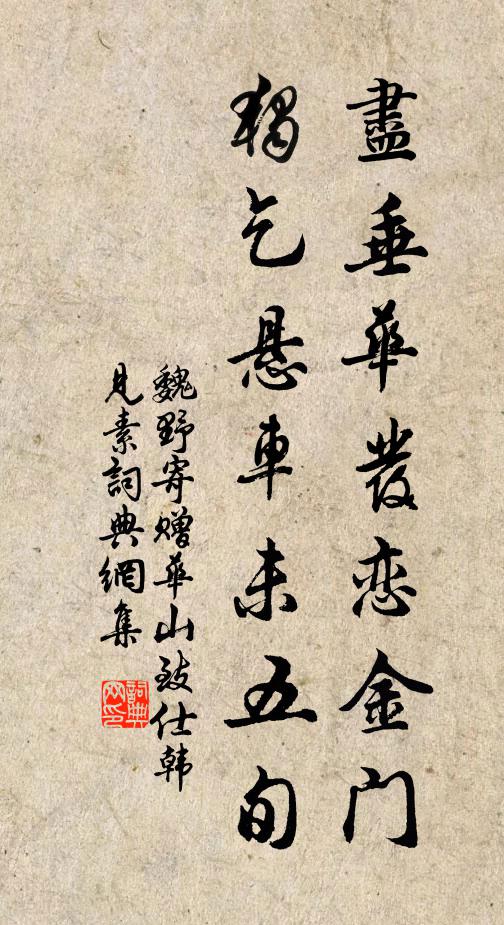 盡垂華發恋金門
獨乞懸車未五旬
魏野寄贈華山致仕韩
見素詞典網集
詞典网印